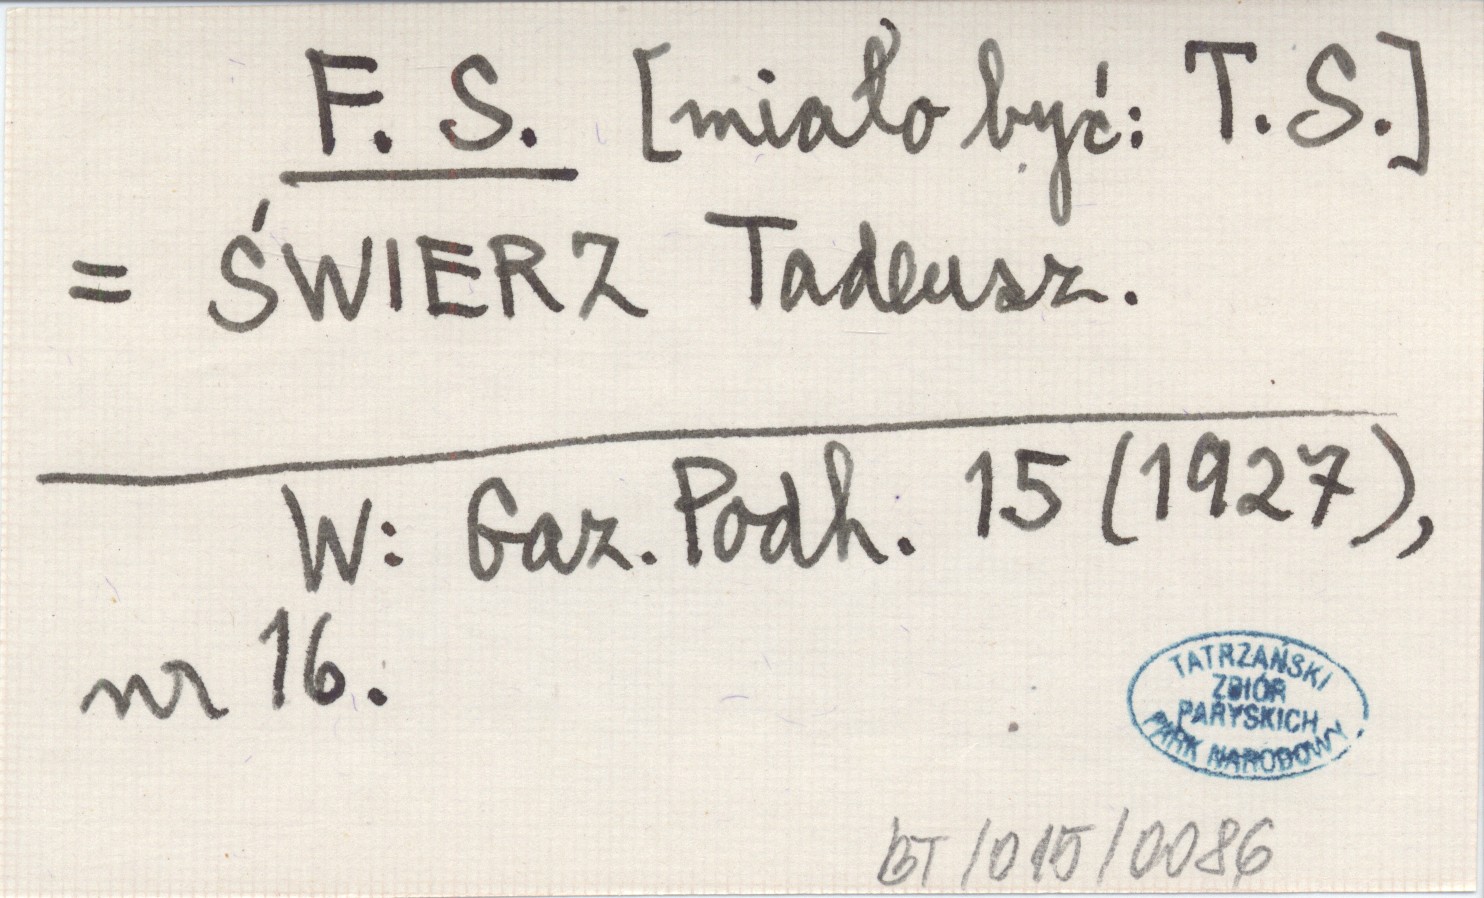 F. S. [miało być: T.S.]
= ŚWIERZ Tadeusz.
W: Gaz. Podh. 15 (1927),
nr 16.
TATRZAŃSKI
ZBIÓR
PARYSKICH
PARK NARODOWY
BT/015/0086